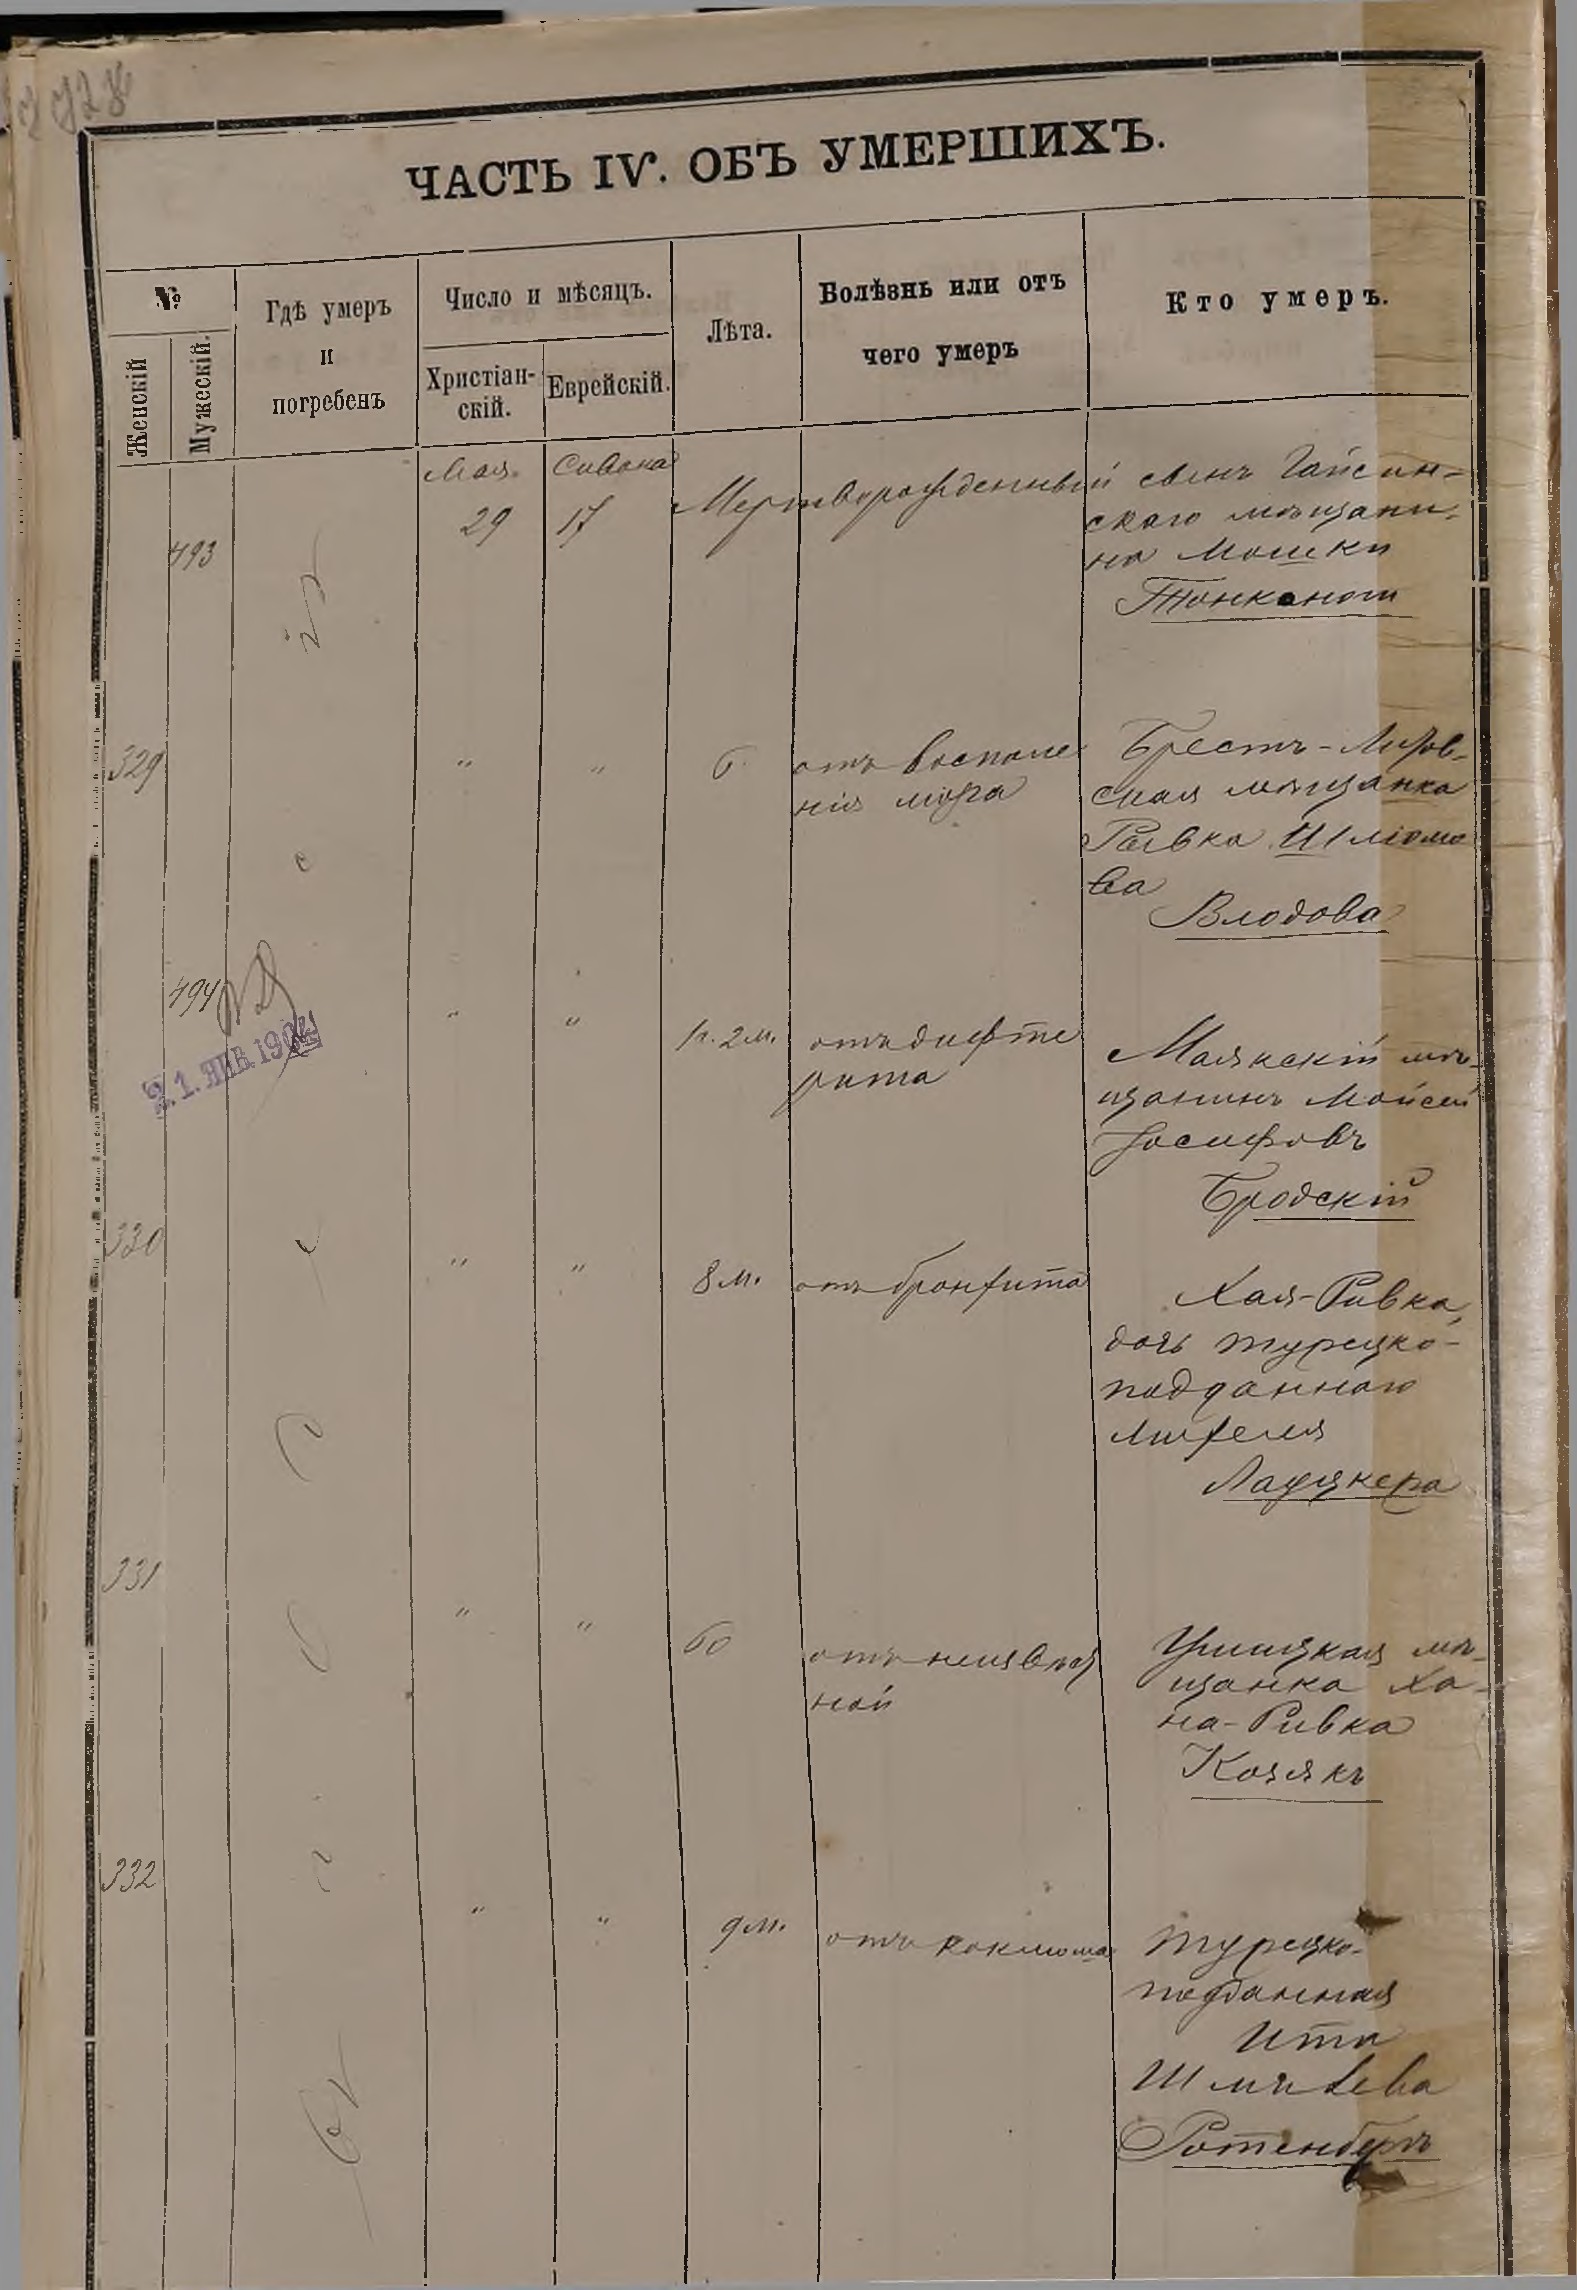 ЧАСТЬ IV. ОБЪ УМЕРШИХЪ.
№
Женскій
Мужескій.
Гдѣ умеръ
и
погребенъ
Число и мѣсяцъ.
Христіан-
скій.
Еврейскій.
Лѣта.
Болѣзнь или отъ
чего умеръ
Кто умеръ.
Мая Сивана
493
29 17
Мертворожденный сынъ Гайсин-
скаго мѣщани-
на Мошки
329
" " 6
отъ воспале
нія мозга
Брестъ-Литов-
ская мѣщанка
Ривка Шліомо
ва
Влодова
494
21. ЯНВ. 1904
" " 1 г. 2 м.
отъ дифте
рита
Маякскій мѣ-
щанинъ Мойсей
Іосифовъ
Бродскій
330
" " 8 м. отъ бронхита
Хая-Ривка,
дочь турецко-
подданнаго
Михеля
Лауцкера
331
" " 60
отъ неизвѣст
ной
Ушицкая мѣ-
щанка Ха-
на-Ривка
Козякъ
332
" " 9 м. отъ коклюша
Турецко-
подданная
Ита
Шмилева
Ротенбергъ
Въ Одессѣ